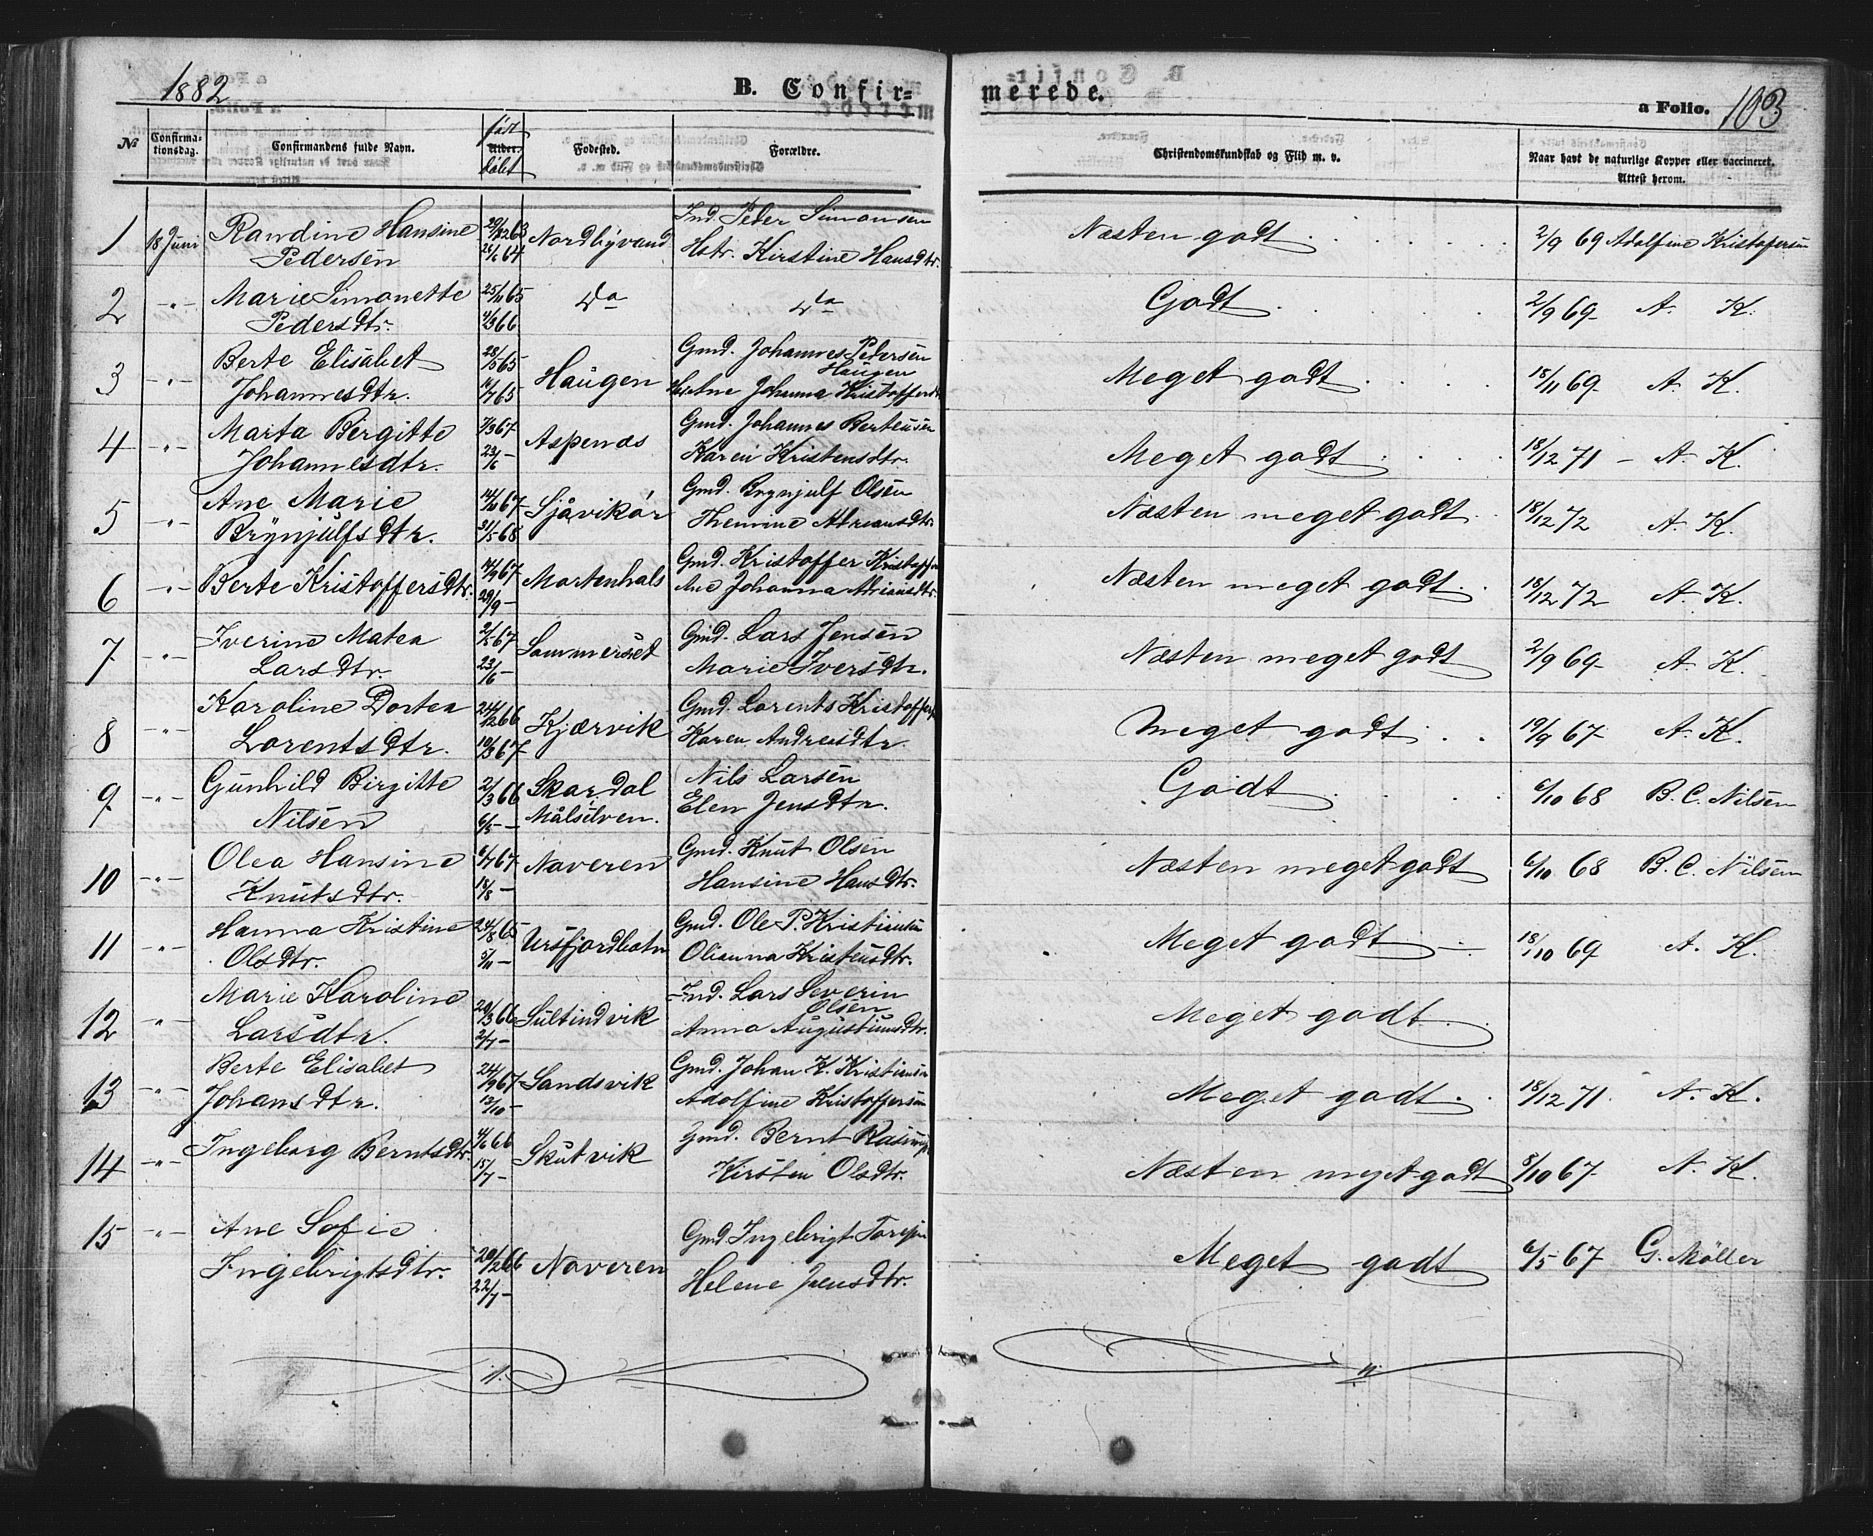 1882
B. Confir=
merede.
a Folio. 103
№
Confirma-
tionsdag.
Confirmandens fulde Navn.
født
Alder.
døbt
Fødested.
Forældre.
Christendomskundskab og Flid m. v.
Naar havt de naturlige Kopper eller vaccineret.
Attest herom.
1 18 Juni Randine Hansine 63 Nordbyvand Ind. Peder Simonsen Næsten godt 2/9 69 Adolfine Kristofersen
Pedersen 25/1 64 Hstr. Kirstine Hansdtr.
2 -"- Marie Simonette 25/11 65 Da Da Godt 2/9 69 A. K.
Pedersdtr. 4/3 66
3 -"- Berte Elisabet 28/5 65 Haugen Gmd. Johannes Pedersen Haugen Meget godt 18/11 69 A. K.
Johannesdtr. 16/7 65 Ane Johanna Kristoffersdtr
4 -"- Marta Bergitte 7/3 67 Aspenæs Gmd. Johannes Berteusen Meget godt 18/12 71 - A. K.
Johannesdtr. 23/6 - Karen Kristensdtr.
5 -"- Ane Marie 14/10 67 Sjåvikør Gmd. Brynjulf Olsen Næsten meget godt 18/12 72 A. K.
Brynjulfsdtr. 31/5 68 Adriansdtr.
6 -"- Berte Kristoffersdtr. 67 Mortenhals Gmd. Kristoffer Næsten meget godt 18/12 72 A. K.
29/9 - Ane Johanna Adriansdtr.
7 -"- Iverine Matea 2/5 67 Sommerset Gmd. Lars Jensen Næsten meget godt 2/9 69 A. K.
Larsdtr. 23/6 - Marie Iversdtr.
8 -"- Karoline Dortea 24/12 66 Kjærvik Gmd. Lorents Meget godt 19/9 67 A. K.
Lorentsdtr. 10/3 67 Karen Andreasdtr
9 -"- Gunhild Birgitte 2/3 66 Skardal Nils Larsen Godt 6/10 68 B. C. Nilsen
Nilsen 6/5 - Målselven. Elen Jensdtr.
10 -"- Olea Hansine 6/7 67 Naveren Gmd. Knut Olsen Næsten meget godt 6/10 68 B. C. Nilsen
Knutsdtr. 18/8 - Hansine Hansdtr.
11 -"- Hanna Kristine 24/8 65 Ursfjordbotn Gmd. Ole P. Kristiansen Meget godt 18/10 69 A. K.
Olsdtr. 5/11 - Olianna Kristensdtr.
12 -"- Marie Karoline 20/3 66 Sultindvik Ind. Lars Severin Olsen Meget godt
Larsdtr. 2/7 - Anna Augustinusdtr.
13 -"- Berte Elisabet 24/9 67 Sandsvik Gmd. Johan K. Kristiansen Meget godt 18/12 71. A. K.
Johansdtr. 13/10 - Adolfine Kristoffersen
14 -"- Ingeborg Berntsdtr 4/6 66 Skutvik Gmd. Bernt Næsten meget godt 8/10 67 A. K.
15/7 - Kirsten Olsdtr.
15 -"- Ane Sofie Gmd. Ingebrigt Meget godt 6/5 67 G. Möller
Ingebrigtsdtr. 66 Naveren Helene Jensdtr.
22/7 -